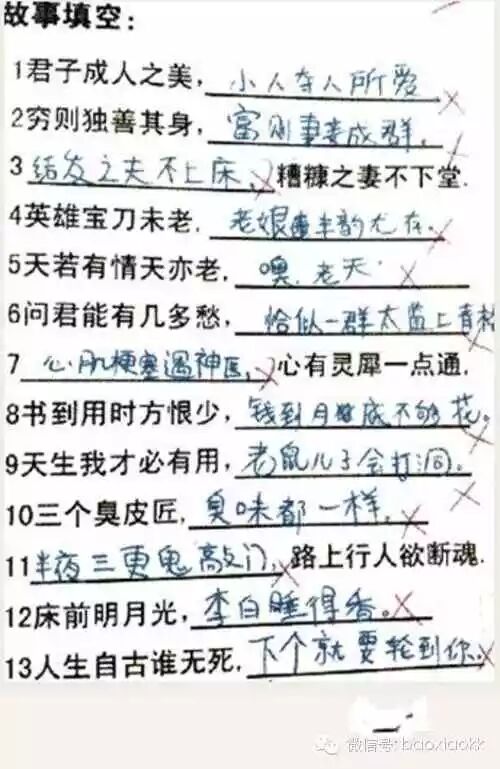 故事填空：
1君子成人之美，小人夺人所爱
2穷则独善其身，富则妻妾成群。
3结发之夫不上床，糟糠之妻不下堂.
4英雄宝刀未老，老娘半韵尤存。
5天若有情天亦老，噢，老天
6问君能有几多愁，恰似一群太监上青楼
7心肌梗塞遇神医，心有灵犀一点通.
8书到用时方恨少，钱到月底不够花。
9天生我才必有用，老鼠儿子会打洞。
10三个臭皮匠，臭味都一样，
11半夜三更鬼敲门，路上行人欲断魂.
12床前明月光，李白睡得香。
13人生自古谁无死，下个就要轮到你。
微信号: baoxiaokk